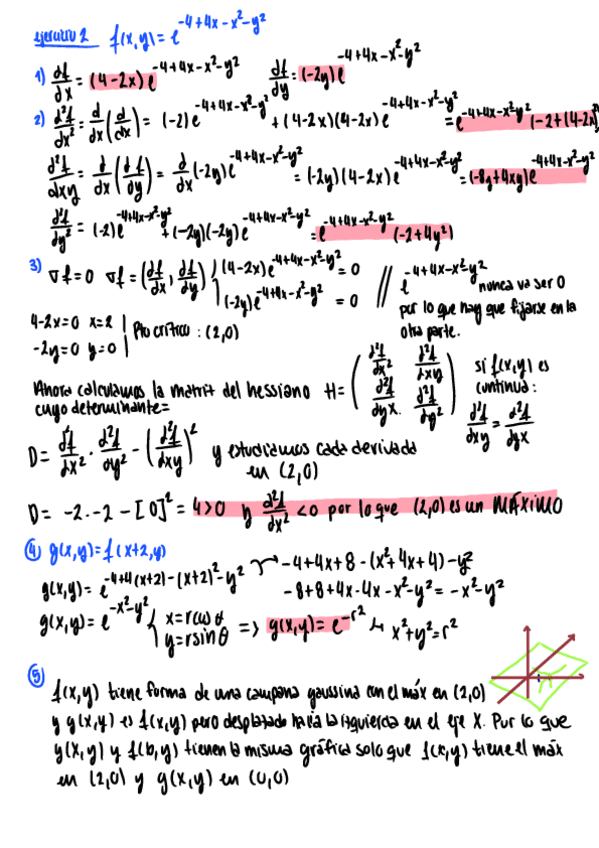 ejercicio 2 f(x,y) = e^{-4+4x-x²-y²}
1) df/dx = (4-2x)e^{-4+4x-x²-y²} df/dy = (-2y)e^{-4+4x-x²-y²}
2) d²f/dx² = d/dx (d/dx) = (-2)e^{-4+4x-x²-y²} + (4-2x)(4-2x)e^{-4+4x-x²-y²} = e^{-4+4x-x²-y²} (-2+(4-2x)²
d²f/dxy = d/dx (df/dy) = d/dx (-2y)e^{-4+4x-x²-y²} = (-2y)(4-2x)e^{-4+4x-x²-y²} = (-8y+4xy)e^{-4+4x-x²-y²}
d²f/dy² = (-2)e^{-4+4x-x²-y²} + (-2y)(-2y)e^{-4+4x-x²-y²} = e^{-4+4x-x²-y²} (-2+4y²)
3) ∇f=0 ∇f = (df/dx, df/dy) (4-2x)e^{-4+4x-x²-y²} = 0
(-2y)e^{-4+4x-x²-y²} = 0
// e^{-4+4x-x²-y²} nunca va ser 0
por lo que hay que fijarse en la
otra parte.
4-2x=0 x=2
-2y=0 y=0
Pto crítico: (2,0)
Ahora calculamos la matriz del hessiano H = (d²f/dx² d²f/dxy
d²f/dyx d²f/dy²)
cuyo determinante=
si f(x,y) es
continua:
d²f/dxy = d²f/dyx
D = d²f/dx² · d²f/dy² - (d²f/dxy)² y estudiamos cada derivada
en (2,0)
D = -2·-2-[0]² = 4>0 y d²f/dx² <0 por lo que (2,0) es un MÁXIMO
④ g(x,y)=f(x+2,y)
g(x,y)= e^{-4+4(x+2)-(x+2)²-y²} -4+4x+8-(x²+4x+4)-y²
-8+8+4x-4x-x²-y² = -x²-y²
g(x,y)= e^{-x²-y²} x=rcosθ
y=rsinθ
=> g(x,y)= e^{-r²} x²+y²=r²
⑤
f(x,y) tiene forma de una campana gaussina con el máx en (2,0)
y g(x,y) es f(x,y) pero desplazado hacia la izquierda en el eje X. Por lo que
g(x,y) y f(x,y) tienen la misma gráfica solo que f(x,y) tiene el máx
en (2,0) y g(x,y) en (0,0)